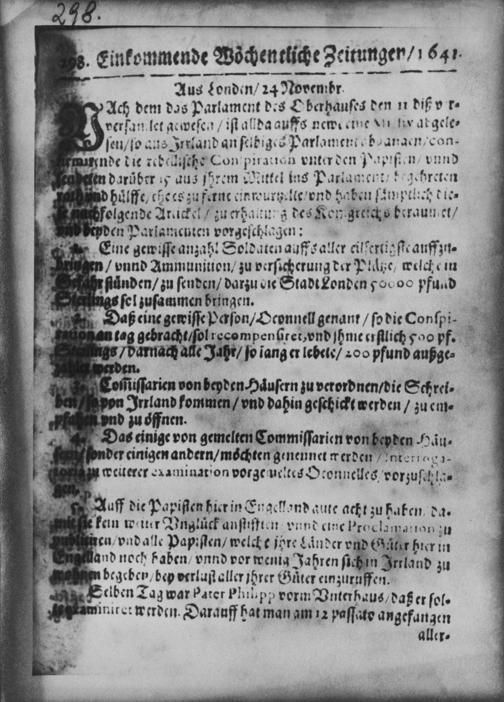 298.
298. Einkommende Wöchentliche Zeitungen / 1641.
Aus Londen / 24 Novembr.
NAch dem das Parlament des Oberhauses den 11 diß
versamlet gewesen / ist allda auffs newe eine
sen / so aus Irrland an selbiges Parlament con-
die rebellische Conspiration vnter den Papisten / vnnd
sendeten darüber 15 aus jhrem Mittel ins Parlament / begehreten
rath vnd hülffe / ehe es zu ferne einwurtzelte / vnd haben sämptlich die-
se nachfolgende Artickel / zu erhaltung des Königreichs beraumet /
vnd beyden Parlamenten vorgeschlagen:
1. Eine gewisse anzahl Soldaten auffs aller eilfertigste auffzu-
bringen / vnnd Ammunition / zu versicherung der Plätze / welche in
Gefahr stünden / zu senden / darzu die Stadt Londen 50000 pfund
Sterlings sol zusammen bringen.
2. Daß eine gewisse Person / Oconnell genant / so die Conspi-
ration an tag gebracht / sol recompensiret, vnd jhme erstlich 500 pf.
Sterlings / darnach alle Jahr / so lang er lebete / 200 pfund außge-
zahlet werden.
3. Commissarien von beyden Häusern zu verordnen / die Schrei-
ben / so von Irrland kommen / vnd dahin geschickt werden / zu em-
pfahen vnd zu öffnen.
4. Das einige von gemelten Commissarien von beyden Häu-
sern / sonder einigen andern / möchten genennet werden / Interroga-
toria zu weiterer examination vorgemeltes Oconnelles / vorzuschla-
gen.
5. Auff die Papisten hier in Engelland gute acht zu haben / da-
mit sie kein weiter Vnglück anstifften / vnnd eine Proclamation zu
publiciren / vnd alle Papisten / welche jhre Länder vnd Güter hier in
Engelland noch haben / vnnd vor wenig Jahren sich in Irrland zu
wohnen begeben / bey verlust aller jhrer Güter einzuruffen.
Selben Tag war Pater Philipp vorm Vnterhaus / daß er sol-
te examiniret werden. Darauff hat man am 12 passato angefangen
aller-